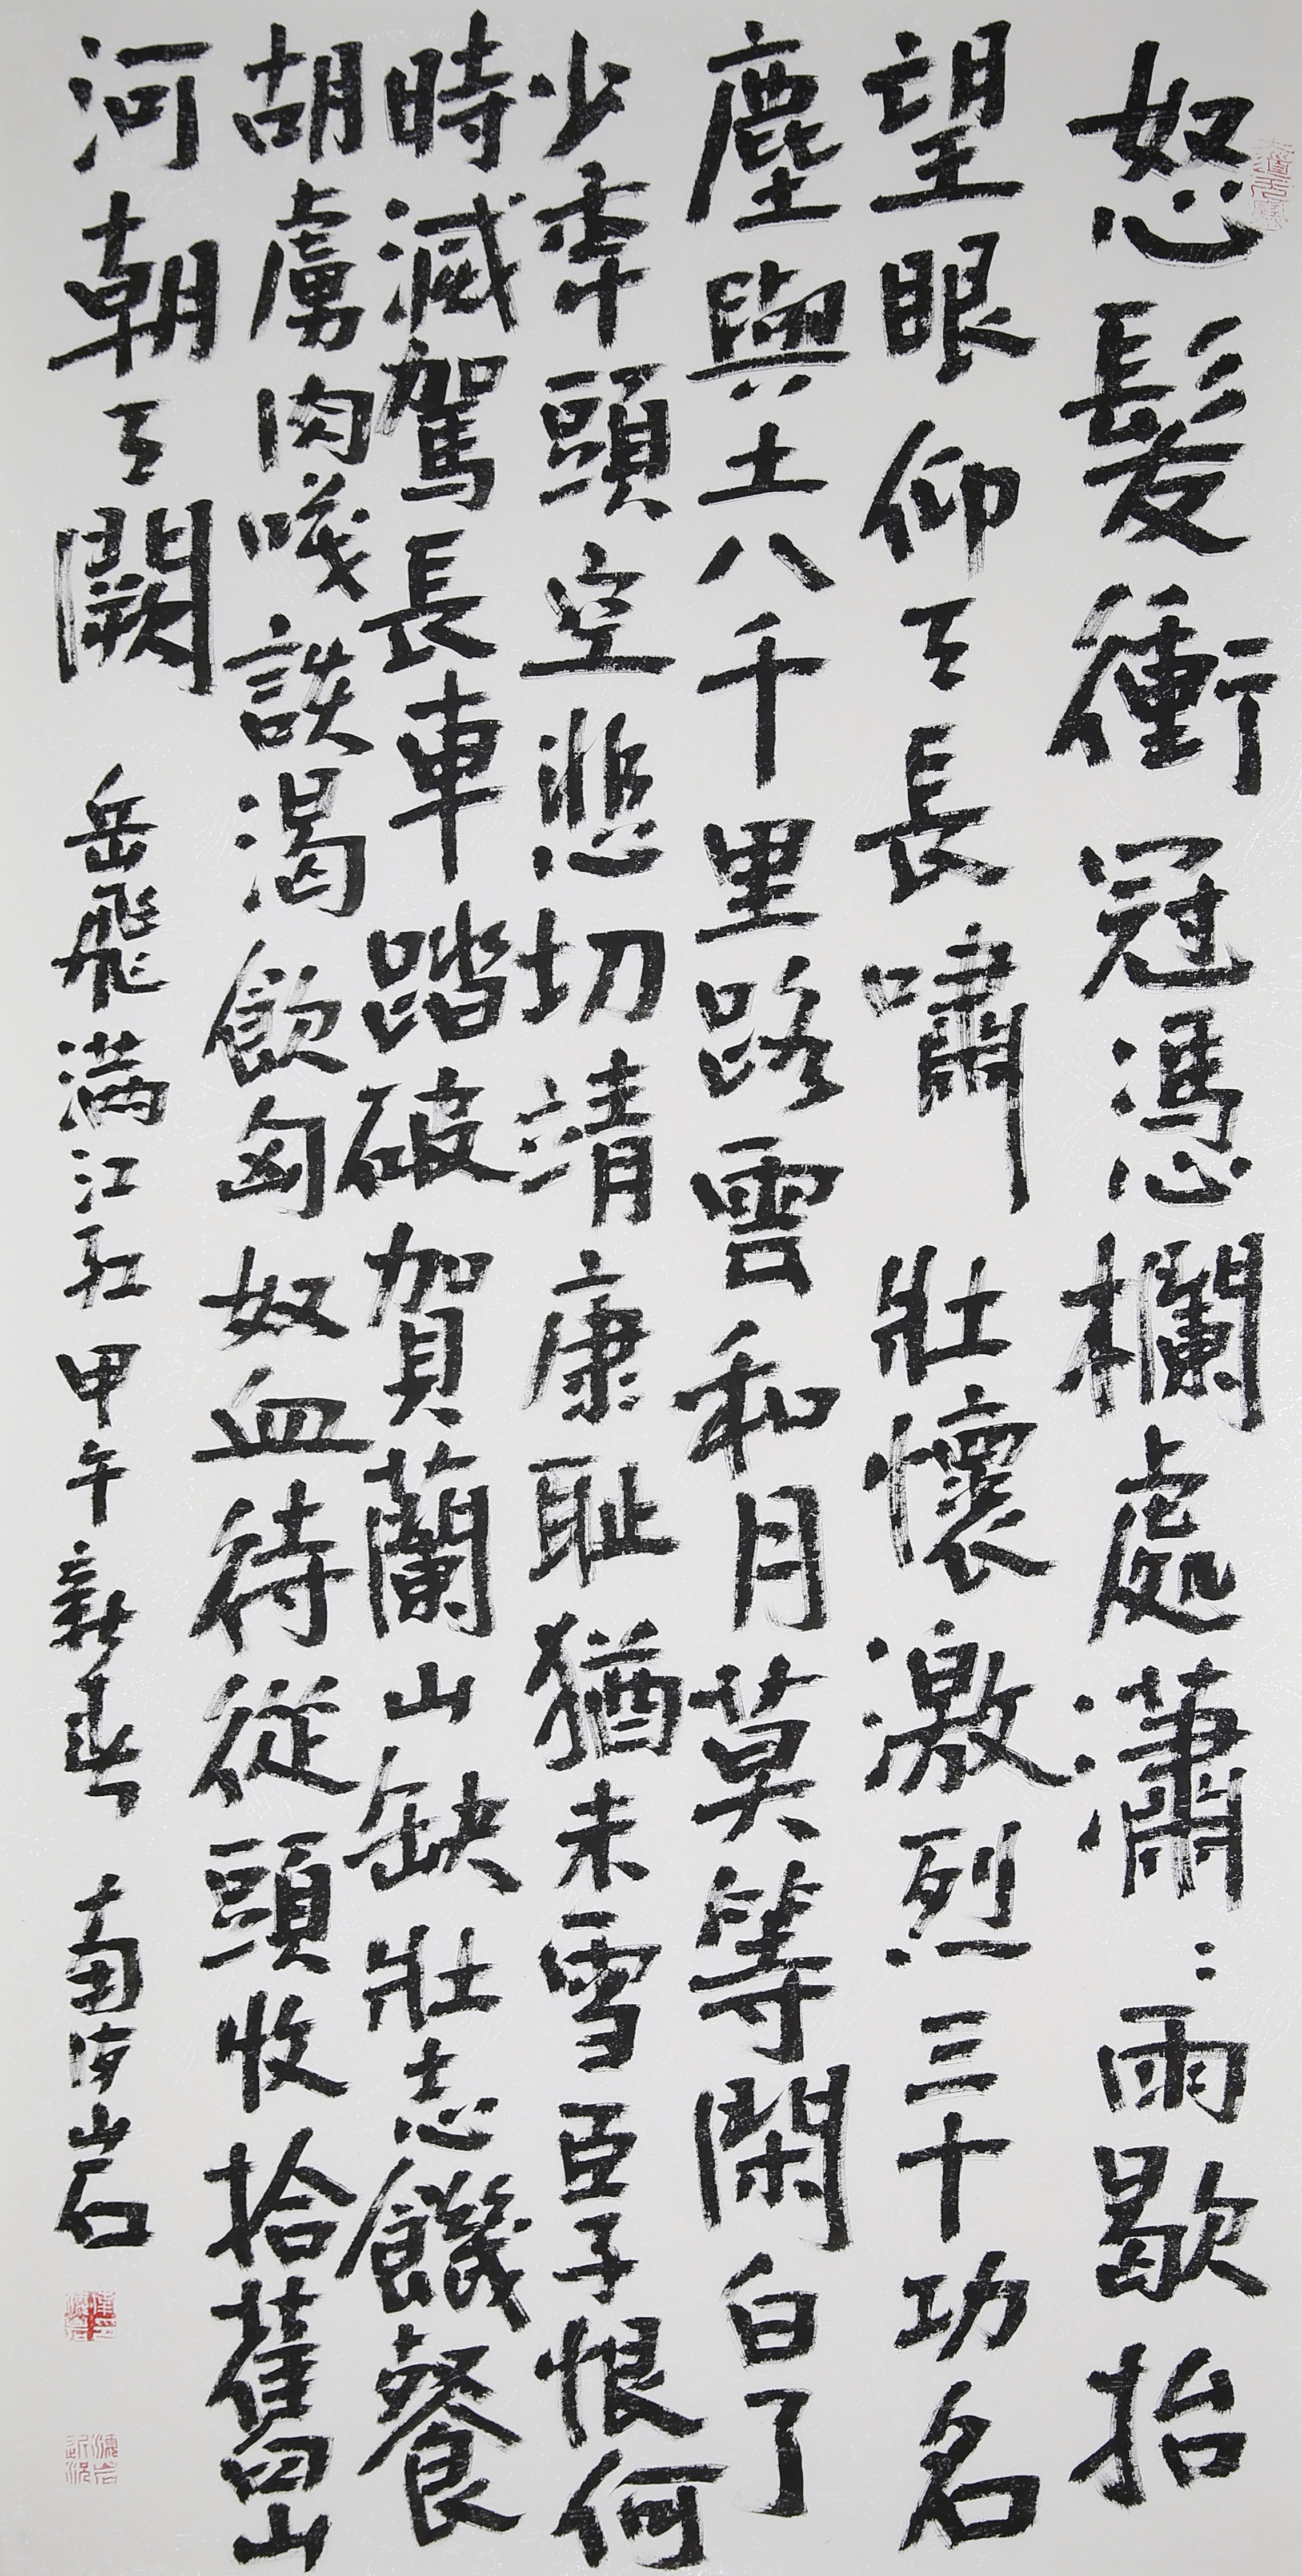 怒髮衝冠憑欄處瀟々雨歇抬
望眼仰天長嘯壯懷激烈三十功名
塵與土八千里路雲和月莫等閑白了
少秊頭空悲切靖康耻猶未雪臣子恨何
時滅駕長車踏破賀蘭山缺壯志饑餐
胡虜肉咲談渴飲匈奴血待從頭收拾舊山
河朝天闕 岳飛滿江紅 甲午新春 南海岩